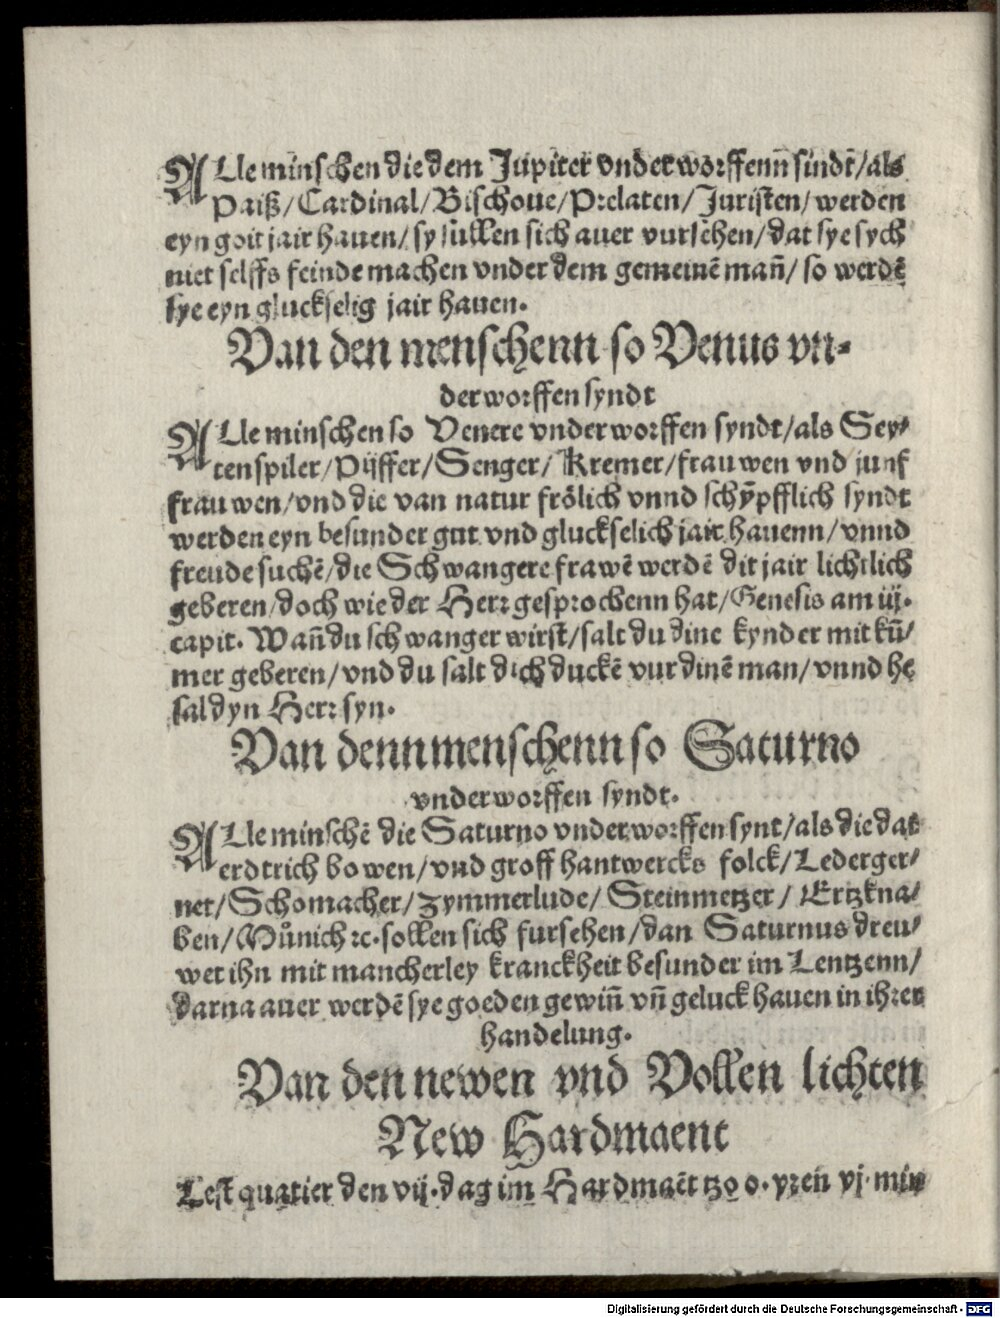 ALle minschen die dem Jupiter vnderworffenn sindt/als
Paiß/Cardinal/Bischoue/Prelaten/Juristen/werden
eyn goit jair hauen/sy sullen sich auer vursehen/dat sye sych
niet selffs feinde machen vnder dem gemeinē mañ/so werdē
sye eyn gluckselig jair hauen.
Van den menschenn so Venus vn-
derworffen syndt
ALle minschen so Venere vnderworffen syndt/als Sey-
tenspiler/Pijffer/Senger/Kremer/frauwen vnd junf
frauwen/vnd die van natur frölich vnnd schÿpfflich syndt
werden eyn besunder gut vnd gluckselich jair hauenn/vnnd
freude suchē/die Schwangere frawē werdē dit jair lichtlich
geberen/doch wie der Herr gesprochenn hat/Genesis am iij.
capit. Wañ du schwanger wirst/salt du dine kynder mit kū-
mer geberen/vnd du salt dich duckē vur dinē man/vnnd he
sal dyn Herr syn.
Van denn menschenn so Saturno
vnderworffen syndt.
ALle minschē die Saturno vnderworffen synt/als die dat
erdtrich bowen/vnd groff hantwercks folck/Lederger-
ner/Schomacher/zymmerlude/Steinmetzer/Ertzkna-
ben/Můnich ꝛc. sollen sich fursehen/dan Saturnus dreu-
wet ihn mit mancherley kranckheit besunder im Lentzenn/
darna auer werdē sye goeden gewiñ vñ geluck hauen in ihrer
handelung.
Van den newen vnd Vollen lichten
New Hardmaent
Lest quatier den vij. dag im Hardmaēt tzo o. vren vj. min
Digitalisierung gefördert durch die Deutsche Forschungsgemeinschaft - DFG